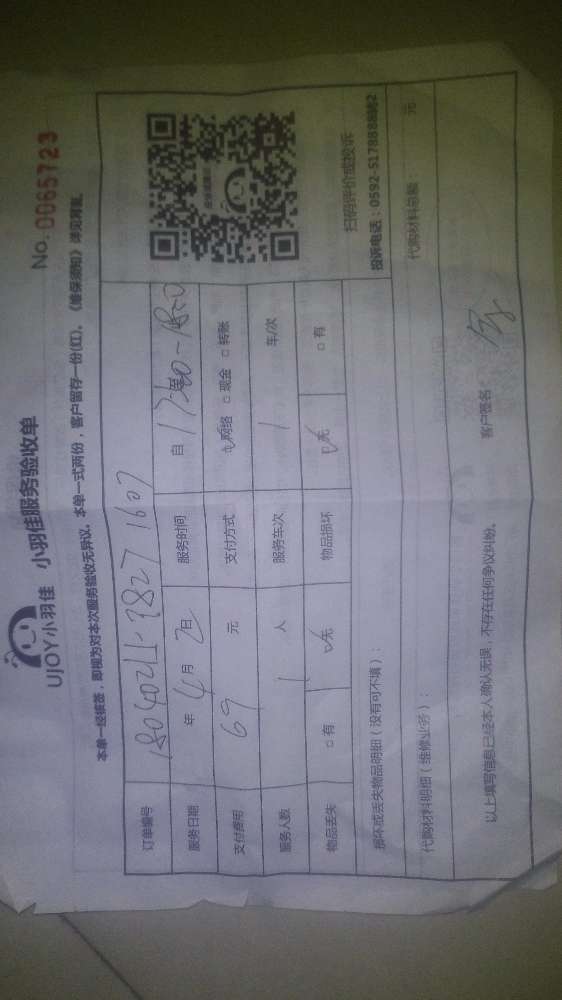 UJOY小羽佳 小羽佳服务验收单
No. 0065723
本单一经核签,即视为对本次服务验收无异议。本单一式两份,客户留存一份(红)。《维保须知》详见背面。
订单编号 18040211-3827 1607
服务日期 年 4月 2日 服务时间 自 17:30~18:00
支付费用 69 元 支付方式 网络 □ 现金 □ 转账
服务人数 1 人 服务车次 1 车/次
物品丢失 □ 有 □ 无 物品损坏 □ 无 □ 有
扫码评价或投诉
投诉电话:0592-5178888转2
损坏或丢失物品明细(没有可不填):
代购材料明细(维修业务): 代购材料总额: 元
以上填写信息已经本人确认无误,不存在任何争议纠纷。 客户签名